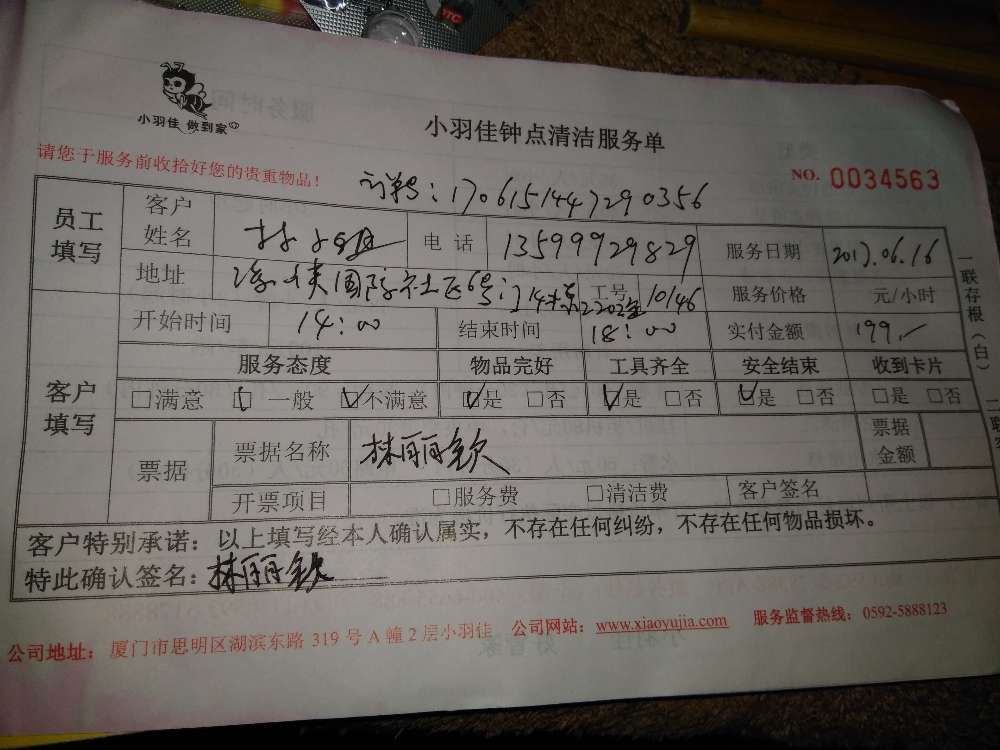 小羽佳 做到家
小羽佳钟点清洁服务单
请您于服务前收拾好您的贵重物品!
NO. 0034563
订单号：170615144729 0356
员工填写 客户姓名 林小姐 电话 13599929829 服务日期 2017.06.16
地址 国际社区6号 2202室 工号 10146 服务价格 元/小时
开始时间 14:00 结束时间 18:00 实付金额 199.-
客户填写 服务态度 物品完好 工具齐全 安全结束 收到卡片
□满意 ☑ 一般 ☑不满意 ☑是 □否 ☑是 □否 ☑是 □否 □是 □否
票据 票据名称 林丽钦 票据金额
开票项目 □服务费 □清洁费 客户签名
客户特别承诺：以上填写经本人确认属实，不存在任何纠纷，不存在任何物品损坏。
特此确认签名：林丽钦
公司地址：厦门市思明区湖滨东路 319 号 A 幢 2 层小羽佳 公司网站：www.xiaoyujia.com 服务监督热线：0592-5888123
一联存根（白）